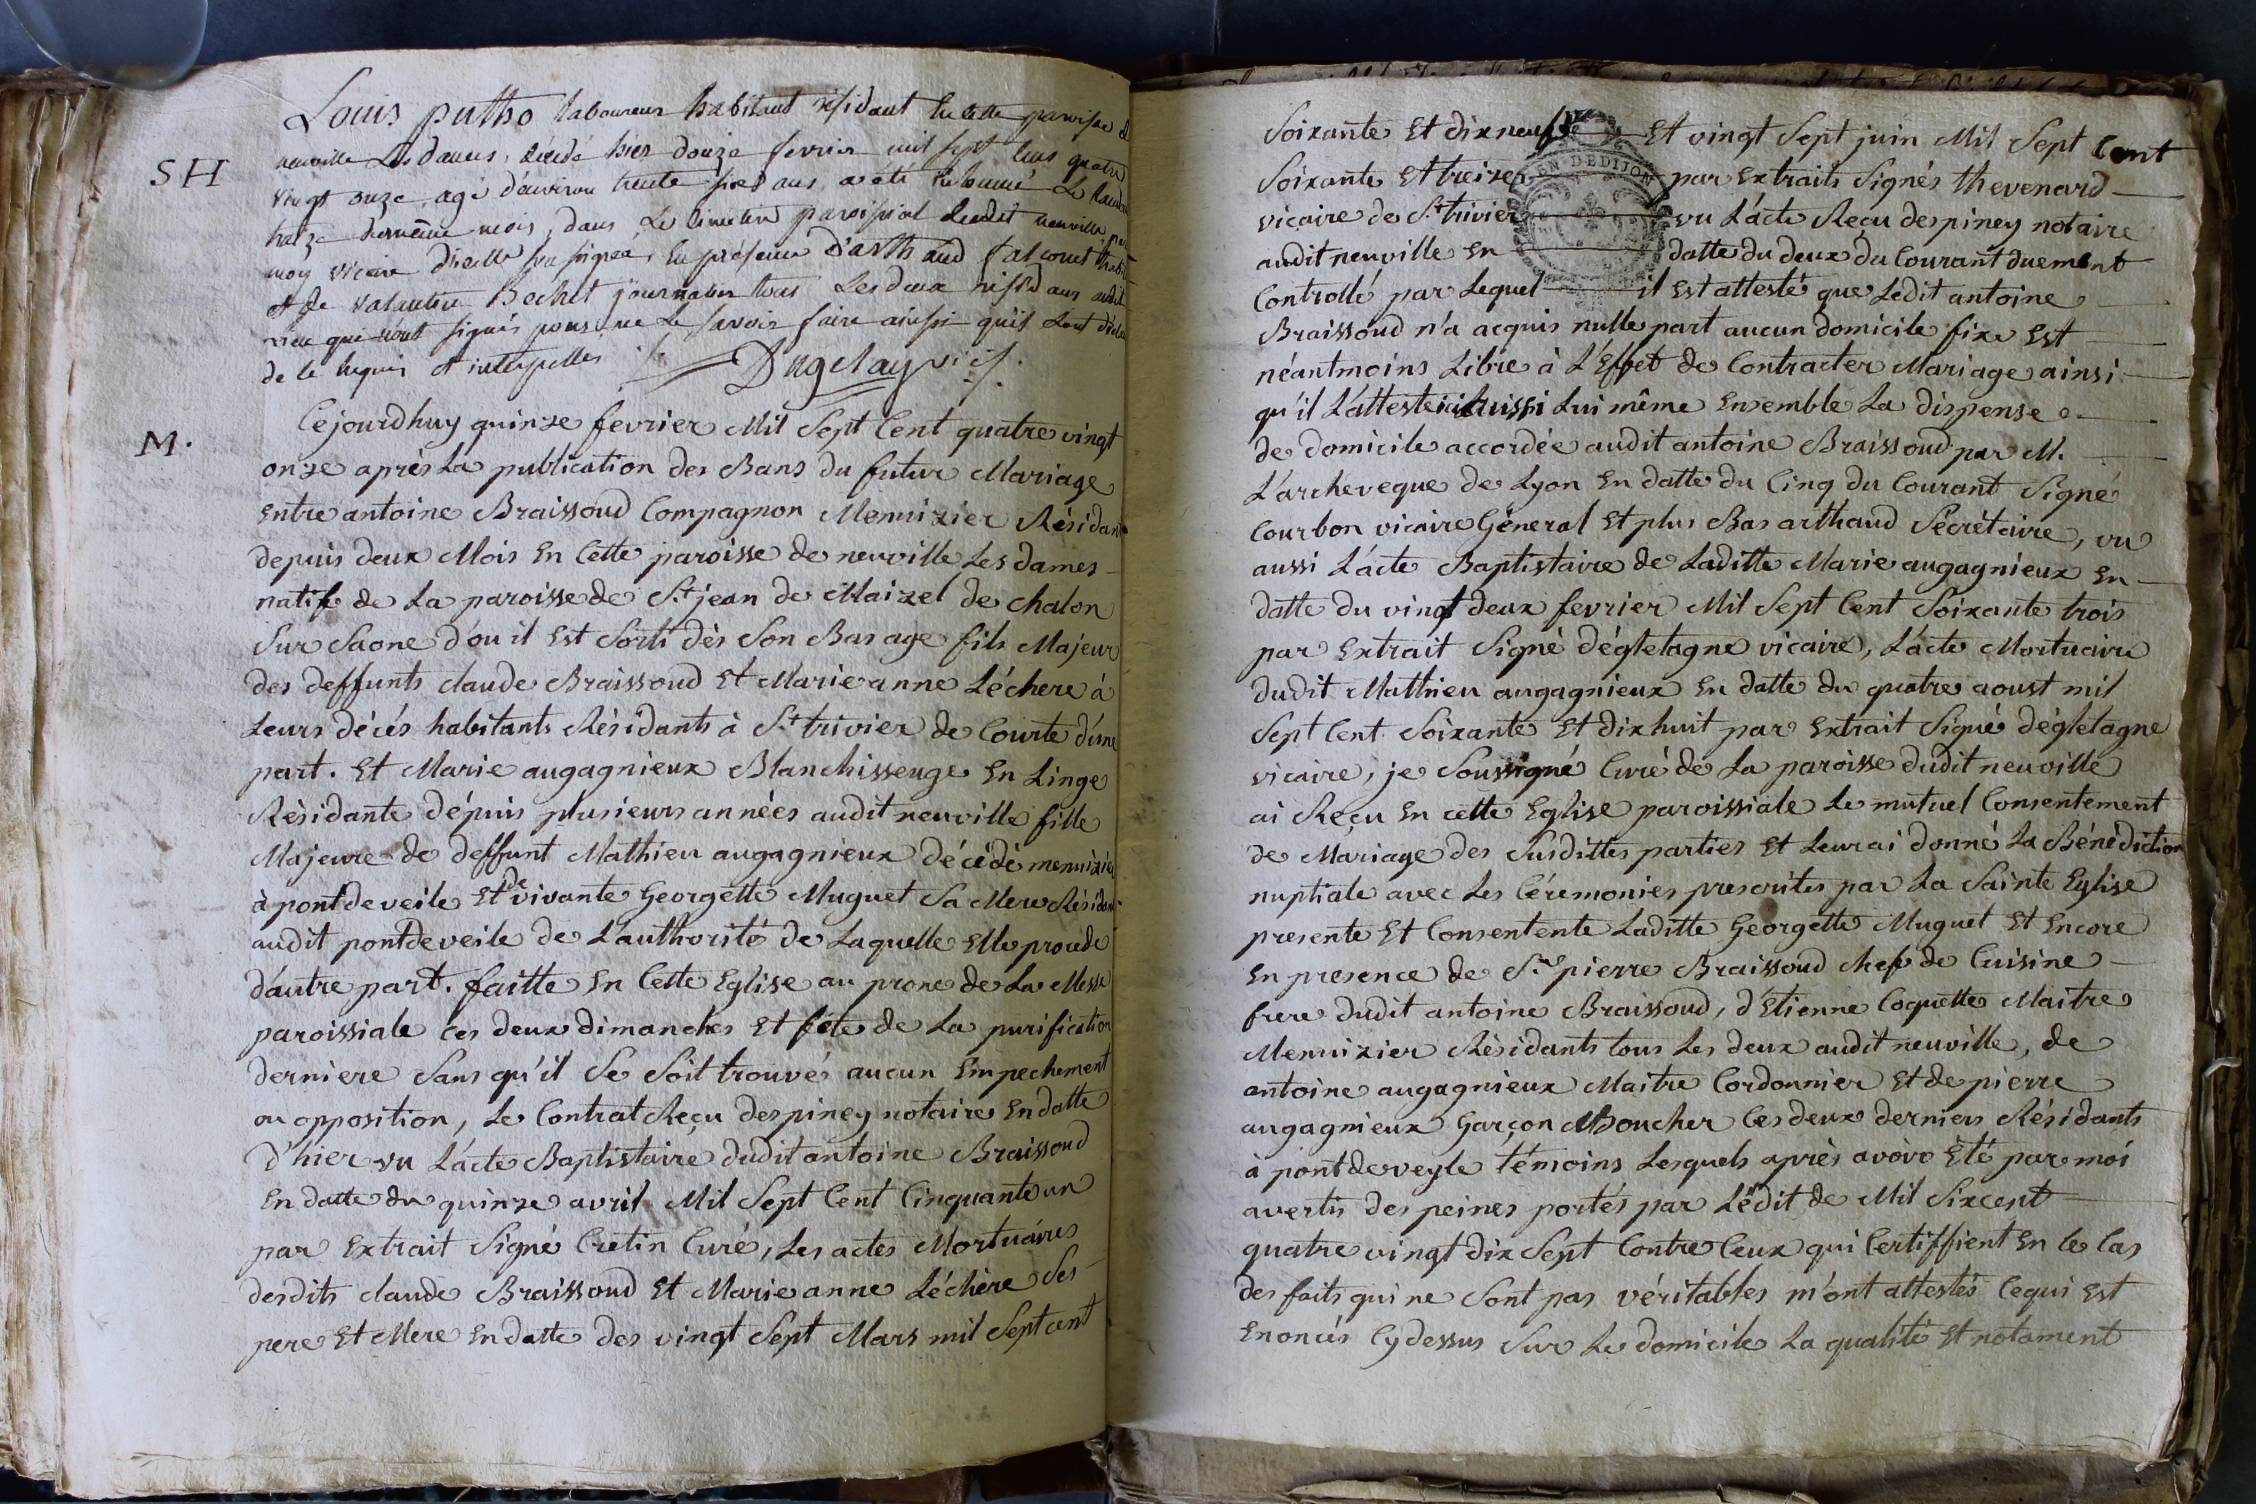 Louis putho laboureur habitant résidant en cette paroisse d
SH
neuville Les dames, décédé hier douze fevrier mil sept cens quatre
vingt onze, agé d'environ trente ans, a été inhumé Le
treize du même mois, dans Le cimetiere paroissial dudit neuville par
moy vicaire d'icelle soussigné, En présence d'arthaud falconnet
et de valantin Bochet journalier tous Les deux résidans audit
lieu que n'ont signés pour ne Le savoir faire ainsi qu'il L'ont déclaré
de ce requis et interpellés
Dugelay vic.
M.
Cejourdhuy quinze fevrier Mil Sept Cent quatre vingt
onze après La publication des Bans du futur Mariage
Entre antoine Braissoud Compagnon Menuizier Résidant
depuis deux Mois En Cette paroisse de neuville Les dames
natif de La paroisse de St jean de Maizel de chalon
Sur Saone d'ou il Est Sorti dès Son Bas age fils Majeur
des deffunts claude Braissoud Et Marie anne Léchere à
Leurs décés habitants Résidants à St trivier de Courte d'une
part. Et Marie augagnieux Blanchisseuge En Linge
Résidante dépuis plusieurs années audit neuville fille
Majeure de deffunt Mathieu augagnieux décédé menuizier
à pont de veile Et de vivante Georgette Muguet Sa Mere Résidant
audit pontdeveile de L'authorité de Laquelle Elle procede
d'autre part. faitte En Cette Eglise au prone de La Messe
paroissiale ces deux dimanches Et fête de La purification
derniere Sans qu'il Se Soit trouvés aucun Empechement
ou opposition, Le Contrat Reçu despiney notaire En datte
d'hier vu L'acte Baptistaire dudit antoine Braissoud
En datte du quinze avril Mil Sept Cent Cinquante un
par Extrait Signé Cretin Curé, Les actes Mortuaires
desdits claude Braissoud Et Marie anne Léchère Ses
pere Et Mere En datte des vingt Sept Mars mil Sept cent
Soixante Et dix neuf Et vingt Sept juin Mil Sept Cent
Soixante Et treize par Extraits Signés thevenard
vicaire de St trivier vu L'acte Reçu despiney notaire
audit neuville En datte du deux du Courant duement
Controllé par Lequel il Est attesté que Ledit antoine
DEDIJON
Braissoud n'a acquis nulle part aucun domicile fixe Est
néantmoins Libre à L'Effet de Contracter Mariage ainsi
qu'il L'atteste ici aussi Lui même Ensemble La dispense
de domicile accordée audit antoine Braissoud par M.
L'archeveque de Lyon En datte du Cinq du Courant Signé
Courbon vicaire Géneral Et plus Bas arthaud Sécrétaire, vu
aussi L'acte Baptistaire de Laditte Marie augagnieux En
datte du vingt deux fevrier Mil Sept Cent Soixante trois
par Extrait Signé dégletagne vicaire, L'acte Mortuaire
dudit Mathieu augagnieux En datte du quatre aoust mil
Sept Cent Soixante Et dixhuit par Extrait Signé dégletagne
vicaire, je Soussigné Curé de La paroisse dudit neuville
ai Reçu En cette Eglise paroissiale Le mutuel Consentement
de Mariage des Susdittes parties Et Leur ai donné La Bénédiction
nuptiale avec Les Céremonies prescrites par La Sainte Eglise
presente Et Consentente Laditte Georgette Muguet Et Encore
En presence de Sr pierre Braissoud chef de Cuisine
frere dudit antoine Braissoud, d'Etienne Coquette Maitre
Menuizier Résidants tous Les deux audit neuville, de
antoine augagnieux Maitre Cordonnier Et de pierre
augagnieux Garçon Boucher Ces deux derniers Résidants
à pontdeveyle témoins Lesquels après avoir Eté par moi
avertis des peines portés par L'édit de Mil Sixcent
quatre vingt dix Sept Contre Ceux qui Certiffient En Ce Cas
des faits qui ne Sont pas véritables m'ont attestés Cequi Est
Enoncés Cydessus Sur Le domicile La qualité Et notament